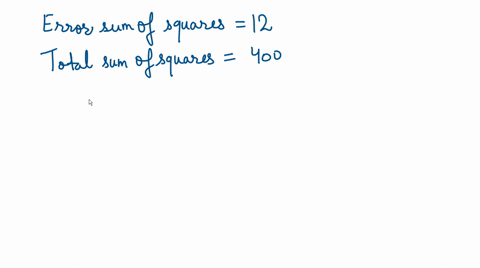 Error sum of squares = 12
Total sum of squares = 400